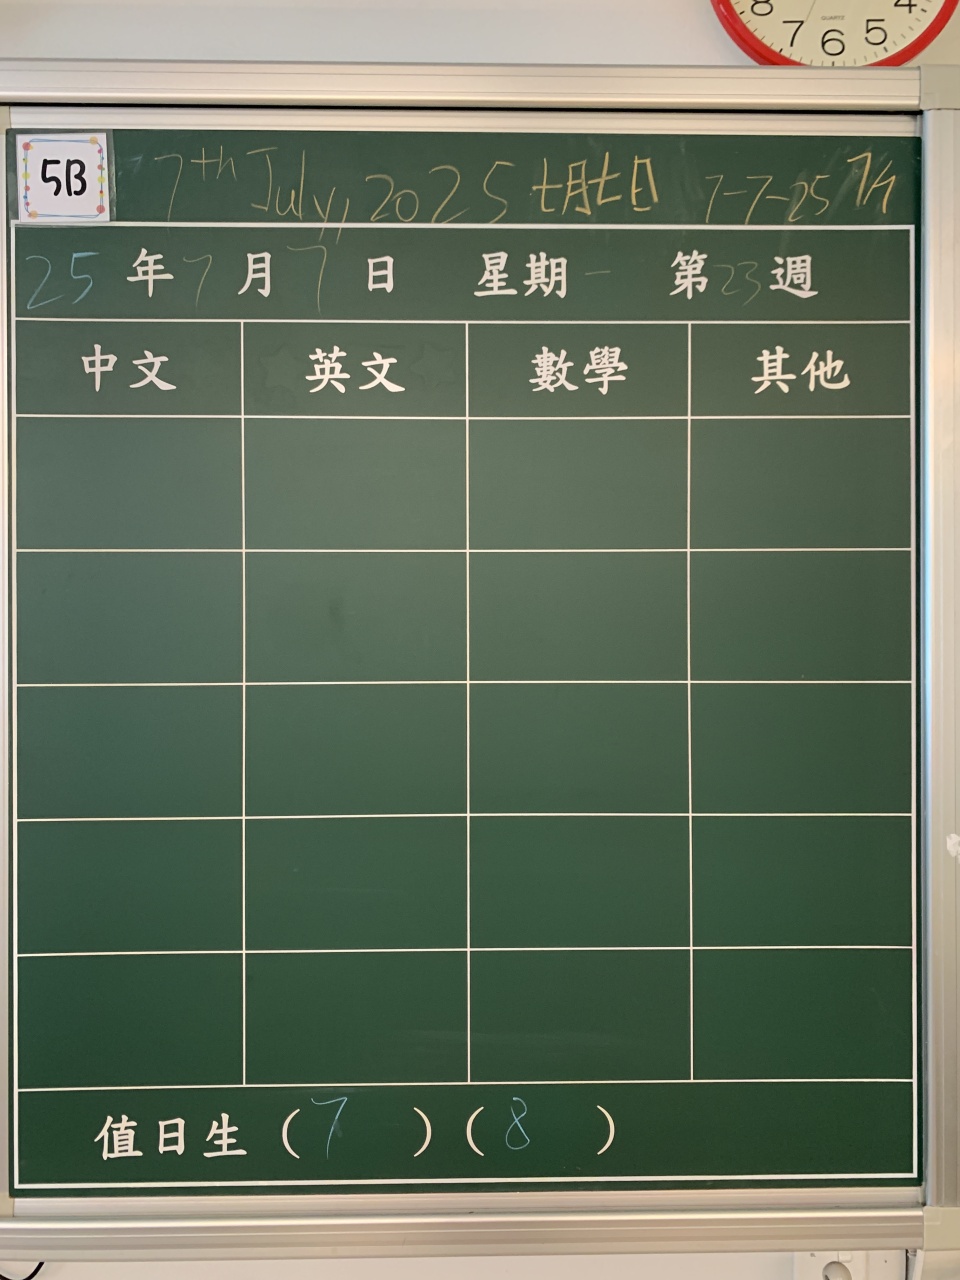 8 7 6 5 4
QUARTZ
5B 7th July, 2025 七月七日 7-7-25 7/7
25年7月7日 星期一 第23週
中文 英文 數學 其他
值日生(7)(8)